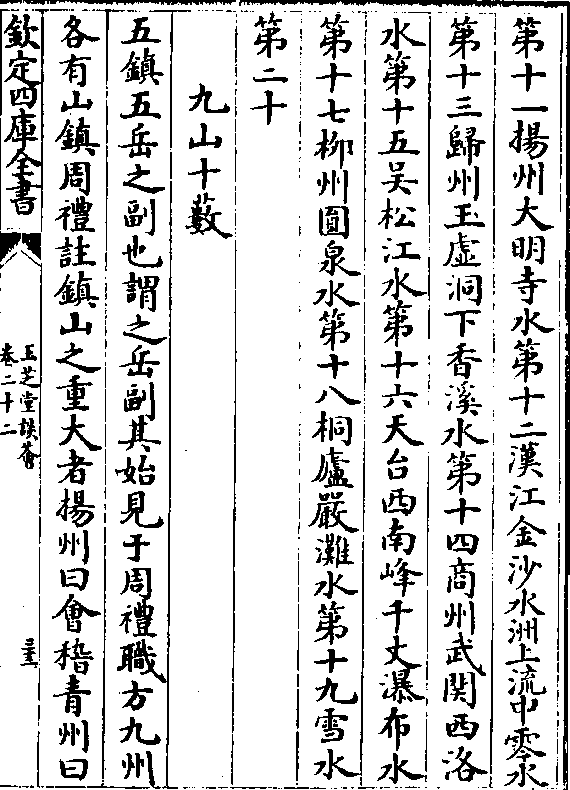 第十一揚州大明寺水第十二漢江金沙水洲上流中零水
第十三歸州玉虛洞下香溪水第十四商州武関西洛
水第十五吴松江水第十六天台西南峰千丈瀑布水
第十七柳州圓泉水第十八桐廬嚴灘水第十九雪水
第二十
九山十藪
五鎮五岳之副也謂之岳副其始見于周禮職方九州
各有山鎮周禮註鎮山之重大者揚州曰會稽青州曰
欽定四庫全書
玉芝堂談薈
卷二十二